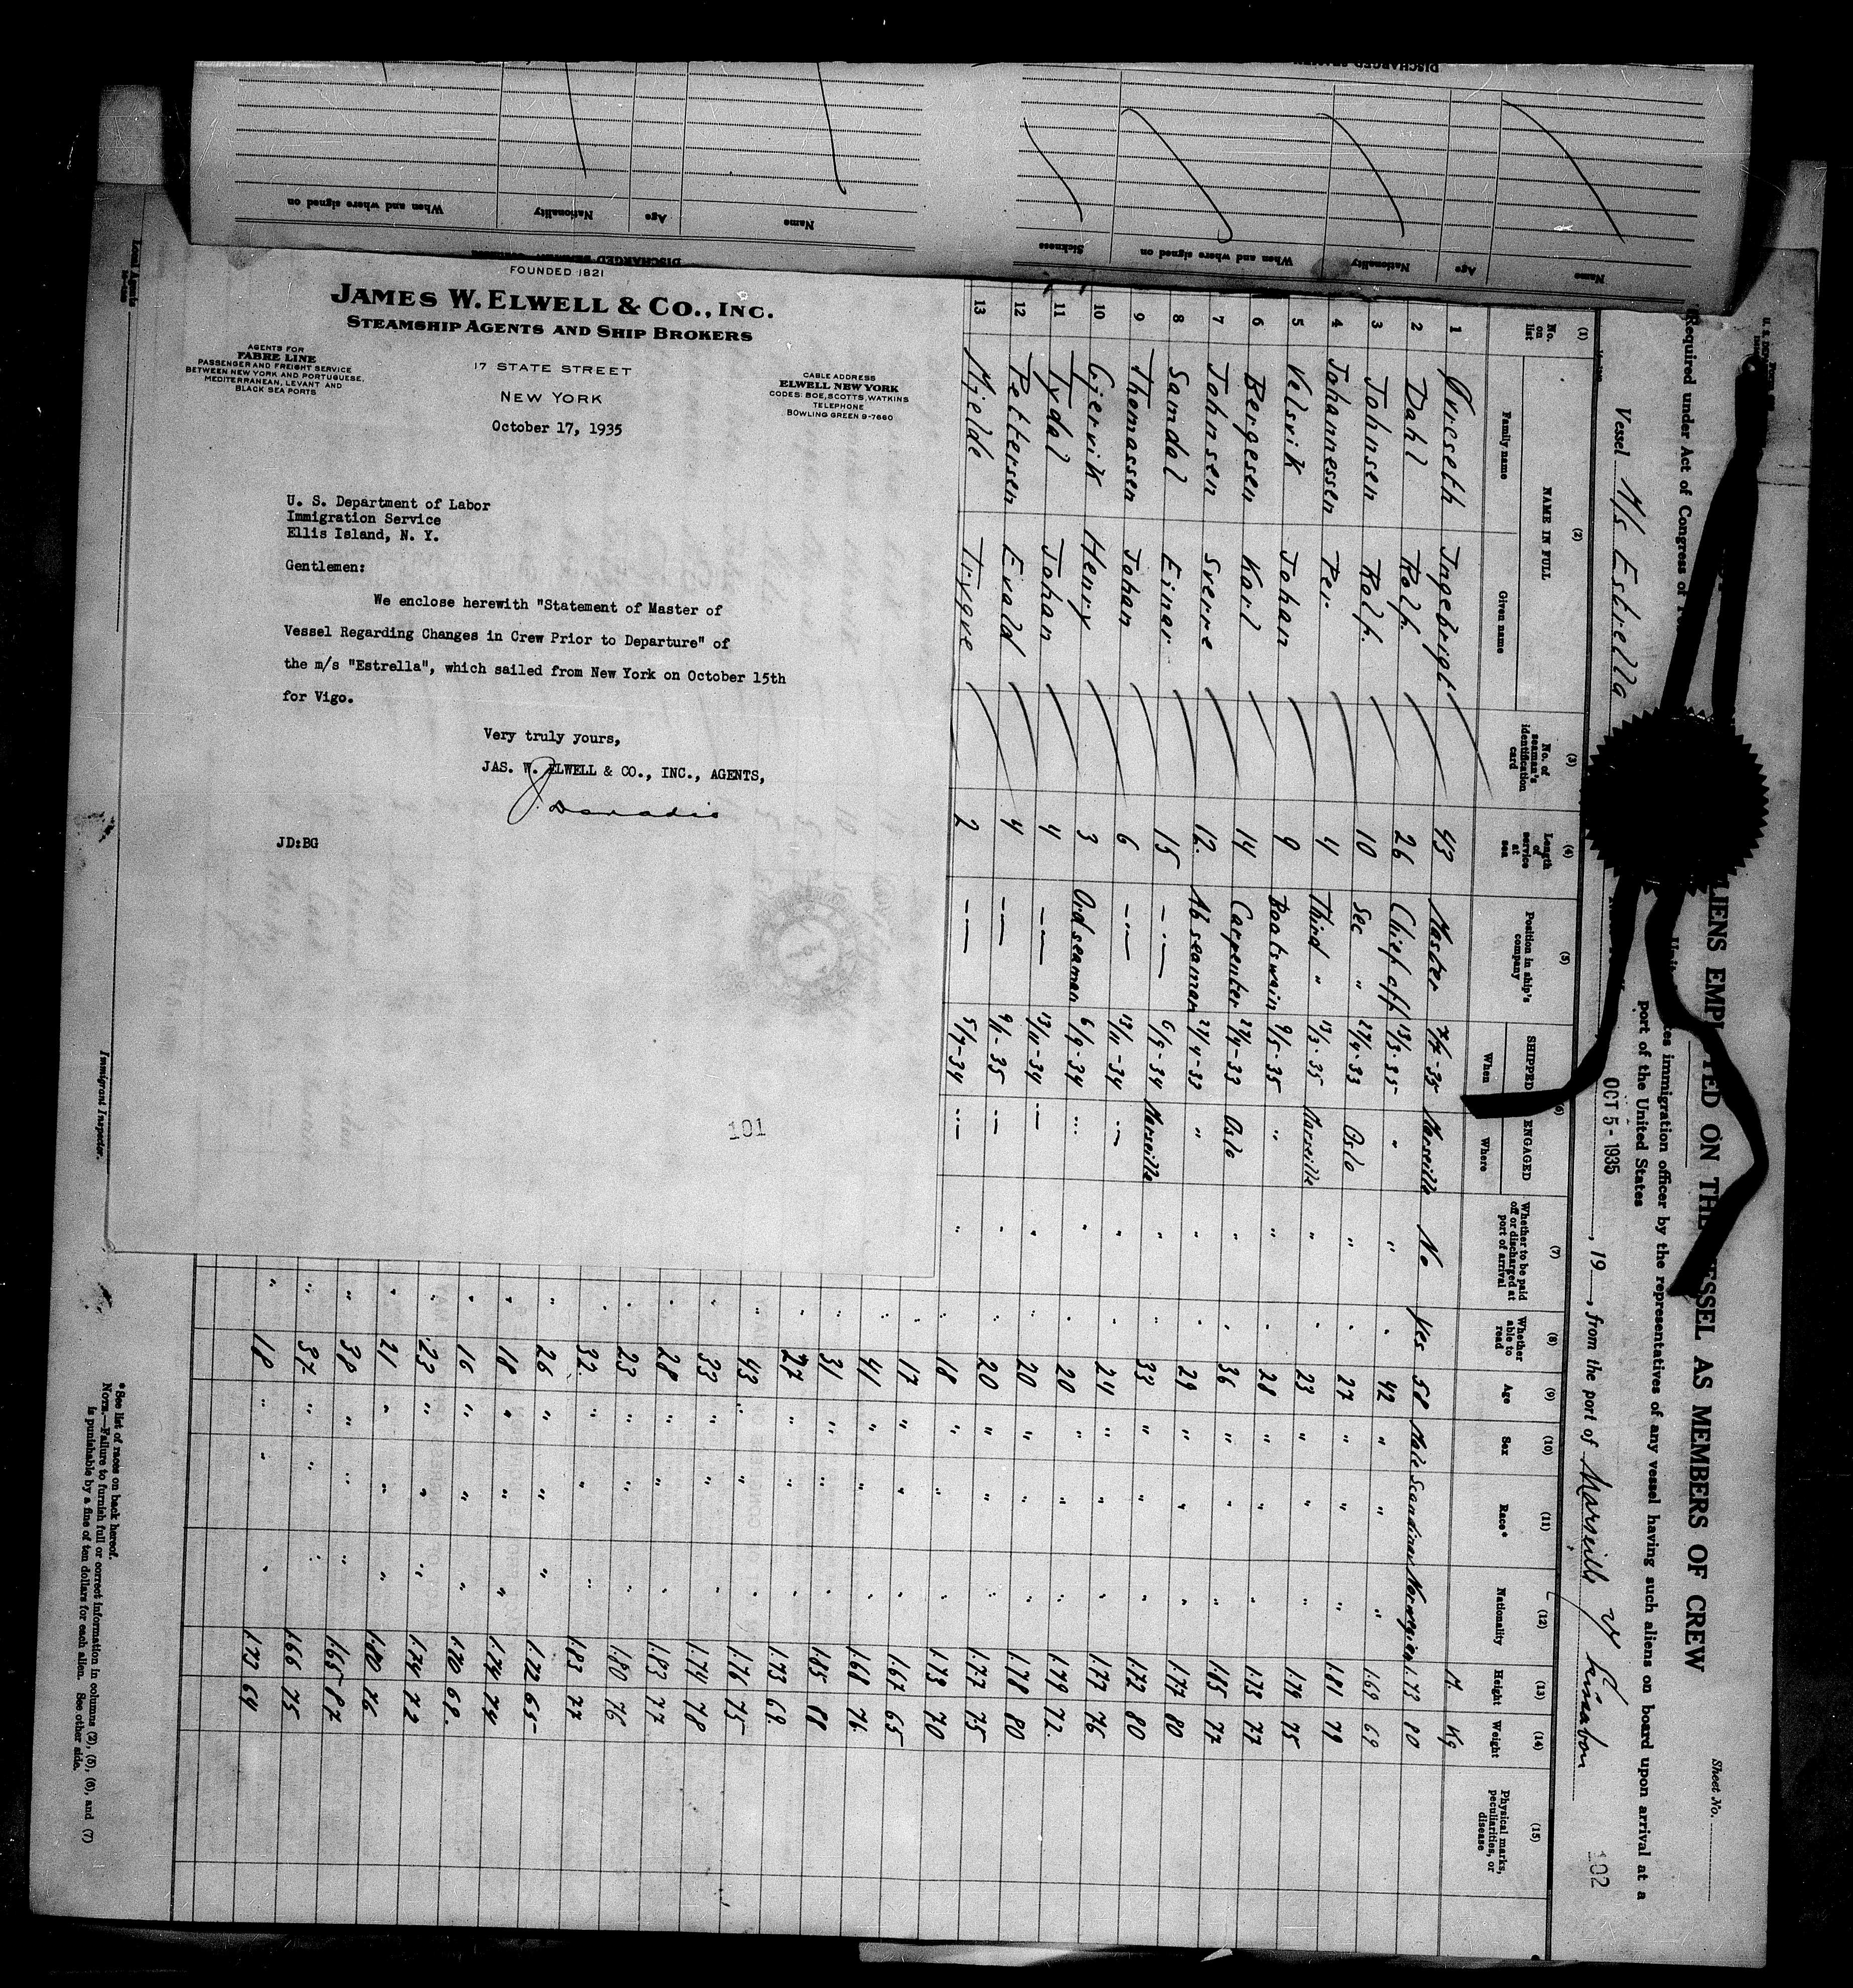 DISCHARGED SEAMEN
Name
Age
Nationality
When and where signed on
Sickness
Name
Age
Nationality
When and where signed on
FOUNDED 1821
JAMES W. ELWELL & CO., INC.
STEAMSHIP AGENTS AND SHIP BROKERS
AGENTS FOR
FABRE LINE
PASSENGER AND FREIGHT SERVICE
BETWEEN NEW YORK AND PORTUGUESE,
MEDITERRANEAN, LEVANT AND
BLACK SEA PORTS
17 STATE STREET
NEW YORK
CABLE ADDRESS
ELWELL NEW YORK
CODES: BOE, SCOTTS, WATKINS
TELEPHONE
BOWLING GREEN 9-7660
October 17, 1935
U. S. Department of Labor
Immigration Service
Ellis Island, N. Y.
Gentlemen:
We enclose herewith "Statement of Master of
Vessel Regarding Changes in Crew Prior to Departure" of
the m/s "Estrella", which sailed from New York on October 15th
for Vigo.
Very truly yours,
JAS. W. ELWELL & CO., INC., AGENTS,
JD:BG
101
Sheet No.
102
ALIENS EMPLOYED ON THE VESSEL AS MEMBERS OF CREW
Required under Act of Congress of
immigration officer by the representatives of any vessel having such aliens on board upon arrival at a
port of the United States
Vessel M/s Estrella
OCT 5 - 1935, 19, from the port of Marseille
(1) No. on list
(2) NAME IN FULL Family name Given name
(3) No. of seaman's identification card
(4) Length of service at sea
(5) Position in ship's company
(6) SHIPPED OR ENGAGED When Where
(7) Whether to be paid off or discharged at port of arrival
(8) Whether able to read
(9) Age
(10) Sex
(11) Race*
(12) Nationality
(13) Height
(14) Weight
(15) Physical marks, peculiarities, or disease
M. Kg
1 Øvreseth Ingebrigt 43 Master Marseille No Yes 58 Male Scandinav Norwegian 1.73 80
2 Dahl Rolf. 26 Chief off 13/3-35 " " " 42 " " " 1.69 69
3 Johnsen Rolf. 10 Sec " 27/4-33 Oslo " " 27 " " " 1.81 79
4 Johannessen Per 4 Third " 13/3-35 Marseille " " 23 " " " 1.79 75
5 Velsvik Johan 9 Baatswain 9/5-35 " " " 28 " " " 1.73 77
6 Bergesen Karl 14 Carpenter 27/4-33 Oslo " " 36 " " " 1.85 77
7 Johnsen Sverre 12. Ab seaman 27/4-33 " " " 29 " " " 1.77 80
8 Samdal Einar 15 -"- 6/9-34 Marseille " " 33 " " " 1.72 80
9 Thomassen Johan 6 -"- 13/11-34 -"- " " 24 " " " 1.77 76
10 Gjervik Henry 3 Ord seaman 6/9-34 -"- " " 20 " " " 1.79 72.
11 Tydal Johan 4 -"- 13/11-34 -"- " " 20 " " " 1.78 80
12 Pettersen Evald 4 -"- 9/1-35 -"- " " 20 " " " 1.77 75
13 Mjelde Trygve 2 -"- 5/7-34 -"- " " 18 " " " 1.73 70
" 17 " " " 1.67 65
" 41 " " " 1.68 76
" 31 " " " 1.85 88
" 27 " " " 1.73 69.
" 43 " " " 1.76 75
" 33 " " " 1.74 78
" 28 " " " 1.83 77
" 23 " " " 1.80 76
" 32. " " " 1.83 77
" 26 " " " 1.72 65
" 18 " " " 1.74 74
" 16 " " " 1.70 68.
" 23 " " " 1.74 72
" 21 " " " 1.80 76
" 38 " " " 1.65 87
" 37. " " " 1.66 75
" 18 " " " 1.73 64
*See list of races on back hereof.
NOTE.—Failure to furnish full or correct information in columns (2), (5), (6), and (7)
is punishable by a fine of ten dollars for each alien. See other side.
Local Agents
Immigrant Inspector.